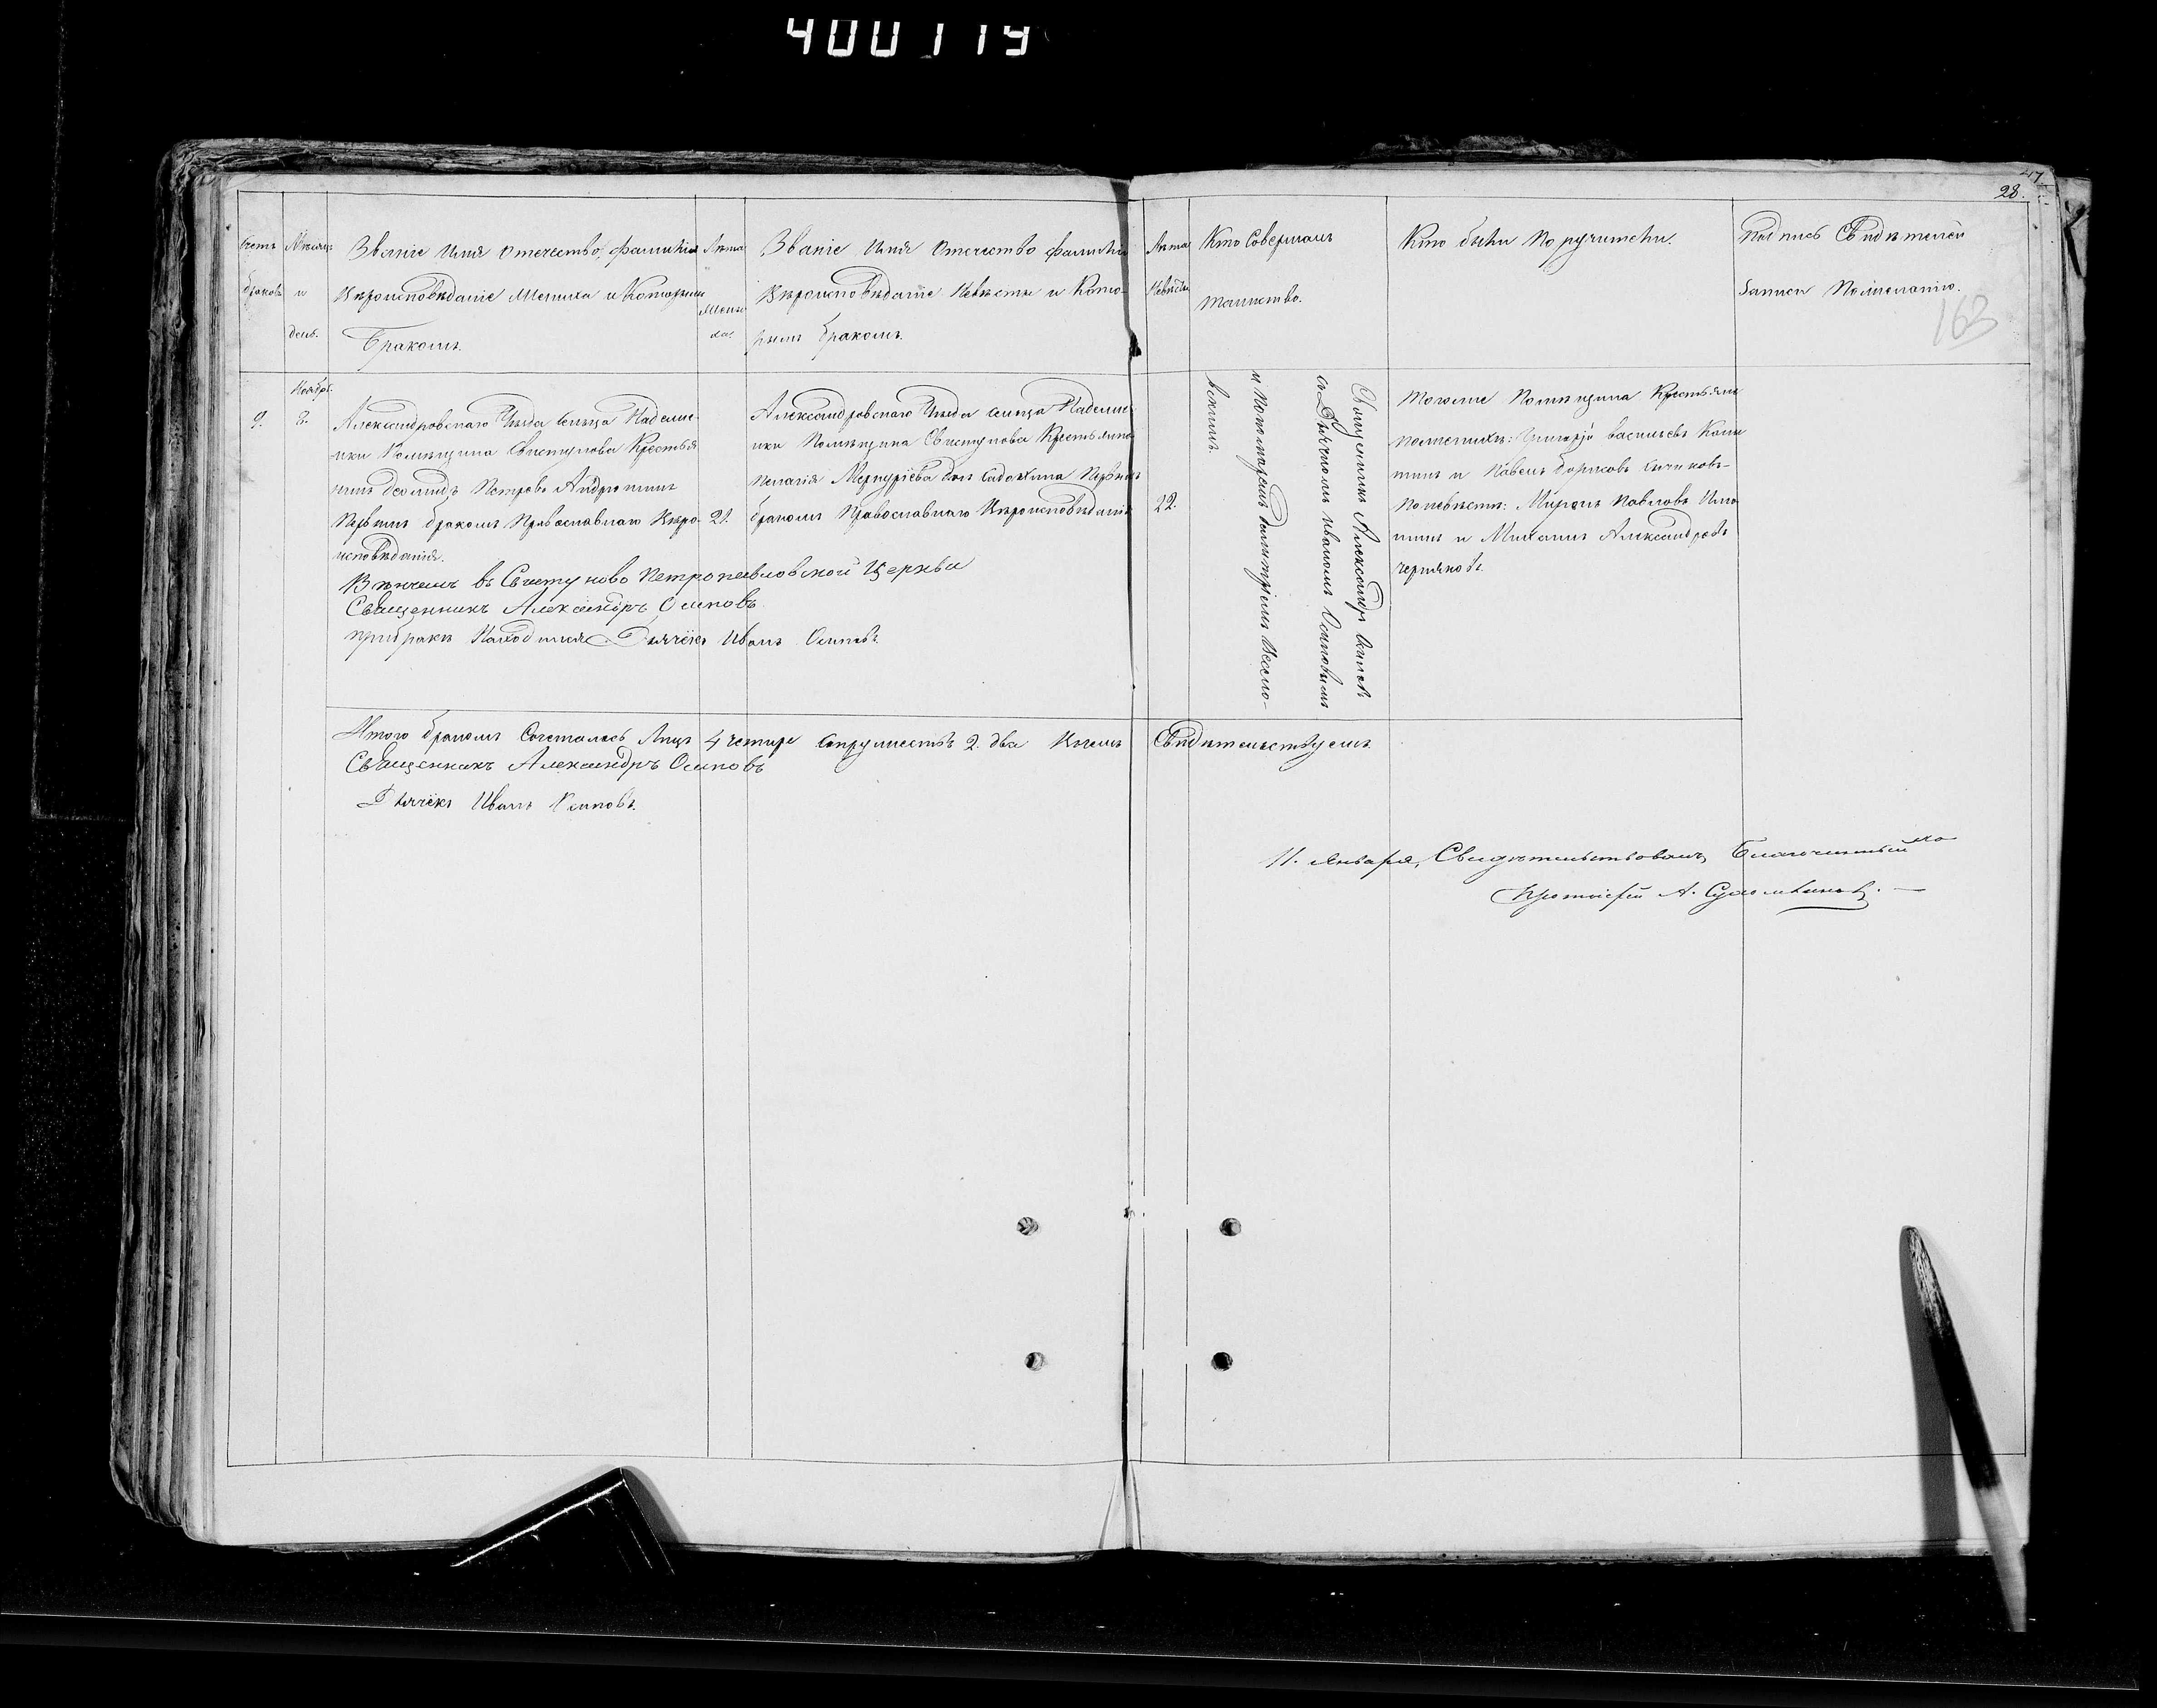 400119
28.
168
Счетъ браковъ
Мѣсяцъ и день.
Званіе Имя Отечество, фамилія
Вѣроисповѣданіе Жениха и Которымъ
Бракомъ.
Лѣта Жениха.
Званіе Имя Отечество фамилія
Вѣроисповѣданіе Невѣсты и Кото-
рымъ бракомъ.
Лѣта Невѣсты
Кто Совершалъ
таинство.
Кто были Поручители.
Подпись Свидѣтелей
записи По желанію.
9.
Ноября
8.
Александровскаго Уѣзда сельца Надежи-
нки Помѣщика Свистунова Крестья
нинъ Деомидъ Петровъ
Первымъ бракомъ Православнаго Вѣро-
исповѣданія.
21.
Александровскаго Уѣзда сельца Надежи-
нки Помѣщика Свистунова Крестьянка
Пелагія Меркуріева Первымъ
бракомъ Православнаго Вѣроисповѣданія
22.
Священникъ Александръ Осиповъ
съ Дьячкомъ Иваномъ Осиповымъ
и Пономаремъ Димитріемъ Весело-
вскимъ.
Тогоже Помѣщика Крестьяне
по женихѣ: Григорій Васильевъ
и Павелъ Борисовъ
по невѣстѣ: Миронъ Павловъ
и Михаилъ Александровъ
Черняковъ.
Вѣнчалъ въ Свистуново Петропавловской Церкви
Священникъ Александръ Осиповъ
при бракѣ Находился Дьячёкъ Иванъ Осиповъ.
Итого бракомъ Сочеталось Лицъ 4 четыре Супружествъ 2. два В чемъ Свидѣтельствуемъ
Священникъ Александръ Осиповъ
Дьячёкъ Иванъ Осиповъ.
11. Января, Свидѣтельствовалъ, Благочинный
Протоіерей А.